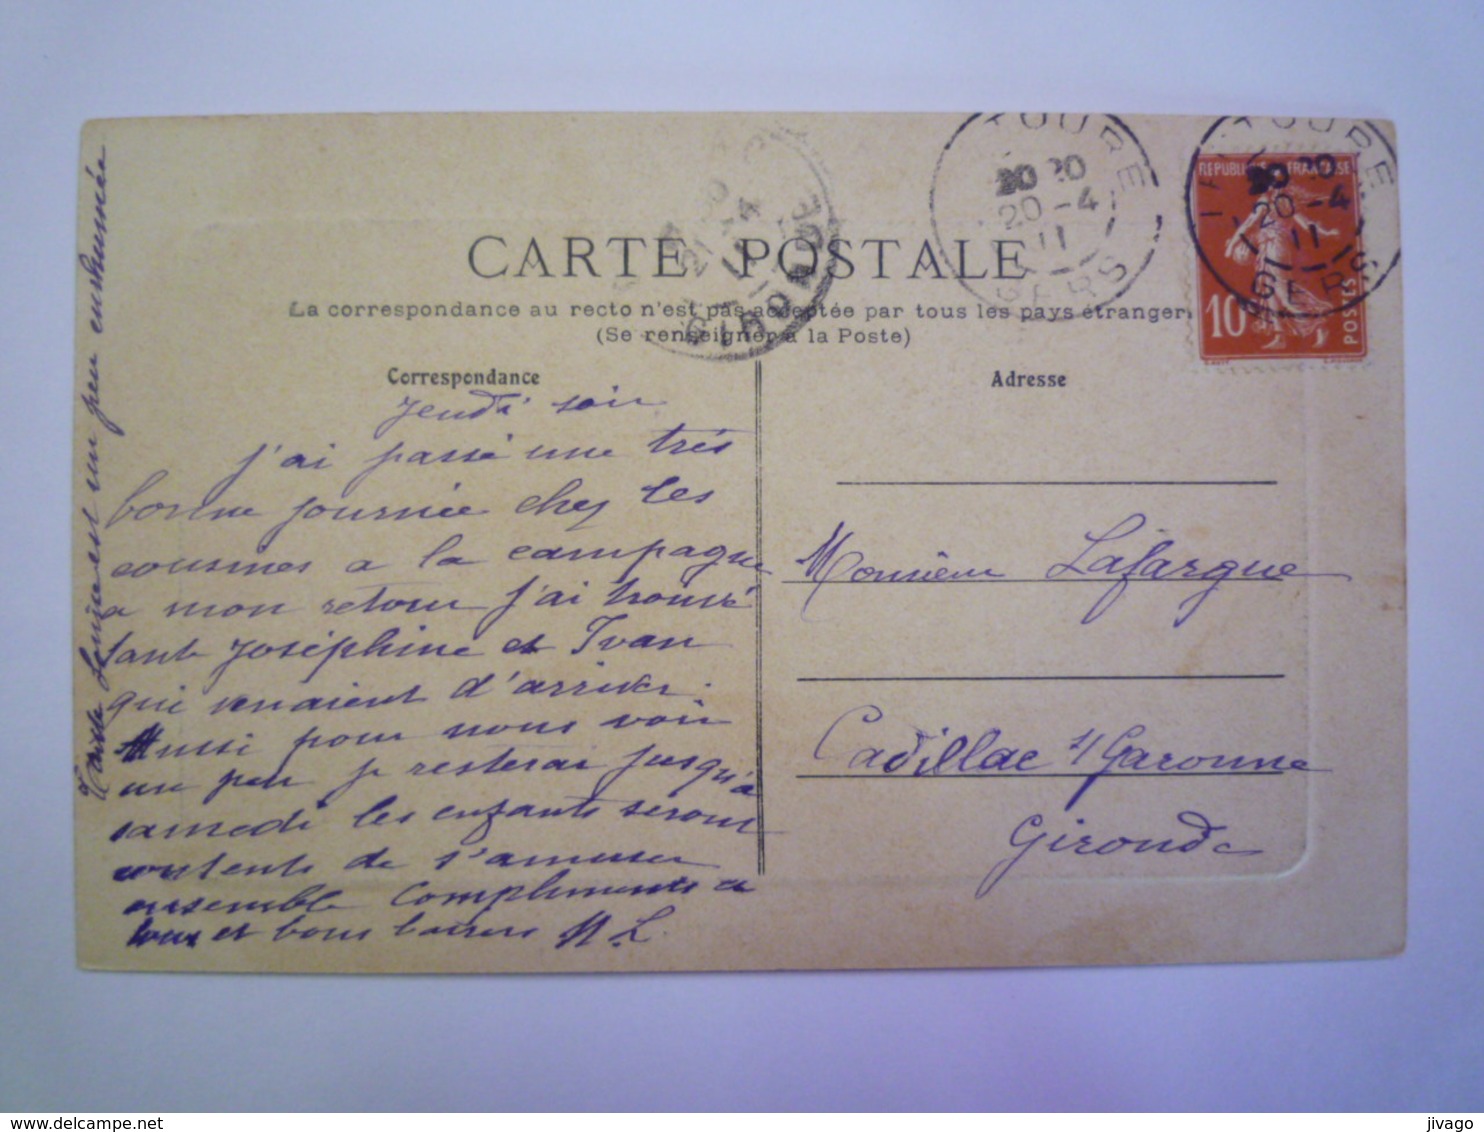 CARTE POSTALE
La correspondance au recto n'est pas acceptée par tous les pays étrangers
(Se renseigner à la Poste)
Correspondance
Adresse
Jeudi soir
J'ai passé une très
bonne journée chez les
cousines a la campagne
a mon retour j'ai trouvé
tante Joséphine et Ivan
qui venaient d'arriver.
Aussi pour nous voir
un peu je resterai jusqu'à
samedi les enfants seront
contents de s'amuser
ensemble Compliments a
tous et bons baisers M. L.
Tante Louise est un peu enrhumée
Monsieur Lafargue
Cadillac s/ Garonne
Gironde
REPUBLIQUE FRANCAISE
10
POSTES
TOURE
20
20 -4
11
GERS
TOURE
20
20 -4
11
GERS
GIRONDE
www.delcampe.net
jivago